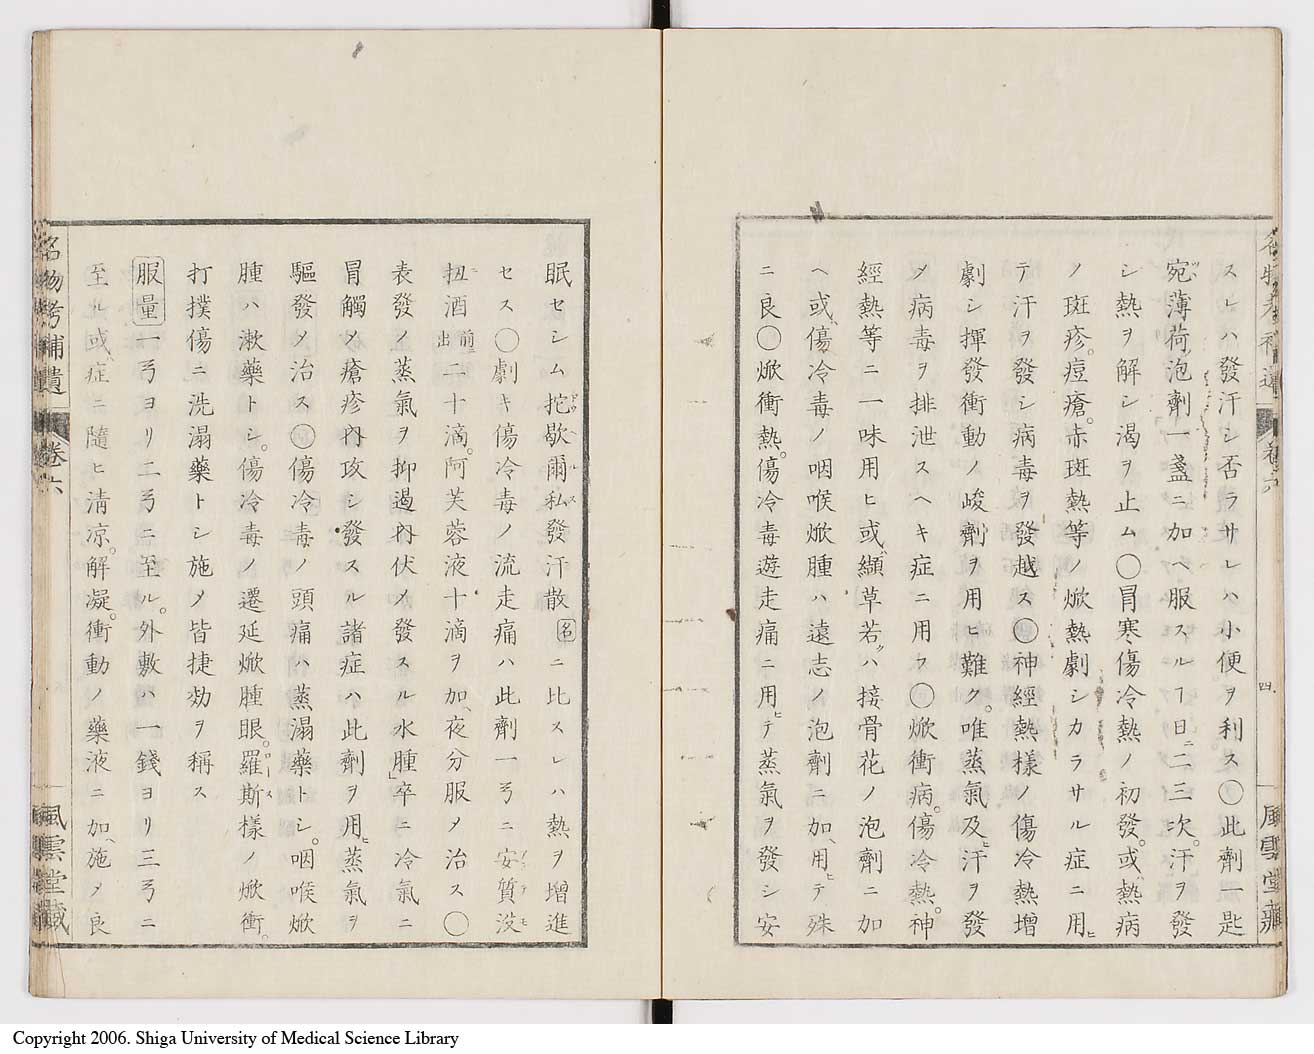 名物考補遺 卷六 四 風雲堂藏
スレハ發汗シ否ラサレハ小便ヲ利ス〇此劑一匙
宛薄荷泡劑一盞ニ加ヘ服スルヿ日ニ二三次。汗ヲ發
シ熱ヲ解シ渇ヲ止ム〇冒寒、傷冷熱ノ初發。或、熱病
ノ斑疹。痘瘡。赤斑熱等ノ焮熱劇シカラサル症ニ用ヒ
テ汗ヲ發シ病毒ヲ發越ス〇神經熱樣ノ傷冷熱増
劇シ揮發衝動ノ峻劑ヲ用ヒ難ク。唯蒸氣及ヒ汗ヲ發
メ病毒ヲ排泄スヘキ症ニ用フ〇焮衝病。傷冷熱。神
經熱等ニ一味用ヒ或、纈草若クハ接骨花ノ泡劑ニ加
ヘ或、傷冷毒ノ咽喉焮腫ハ遠志ノ泡劑ニ加、用ヒテ殊
ニ良〇焮衝熱。傷冷毒遊走痛ニ用ヒテ蒸氣ヲ發シ安
眠セシム挓歇爾私發汗散名ニ比スレハ熱ヲ增進
セス〇劇キ傷冷毒ノ流走痛ハ此劑一弓ニ安質沒
扭酒前出二十滴。阿芙蓉液十滴ヲ加、夜分服メ治ス〇
表發ノ蒸氣ヲ抑遏內伏メ發スル水腫」卒ニ冷氣ニ
冒觸メ瘡疹內攻シ發スル諸症ハ此劑ヲ用ヒ蒸氣ヲ
驅發メ治ス〇傷冷毒ノ頭痛ハ蒸溻藥トシ。咽喉焮
腫ハ漱藥トシ。傷冷毒ノ遷延焮腫眼。羅斯樣ノ焮衝。
打撲傷ニ洗溻藥トシ施メ皆捷効ヲ稱ス
服量一弓ヨリ二弓ニ至ル。外敷ハ一錢ヨリ三弓ニ
至ル或、症ニ隨ヒ淸凉。解凝。衝動ノ藥液ニ加、施メ良
名物考補遺 卷六 風雲堂藏
Copyright 2006. Shiga University of Medical Science Library